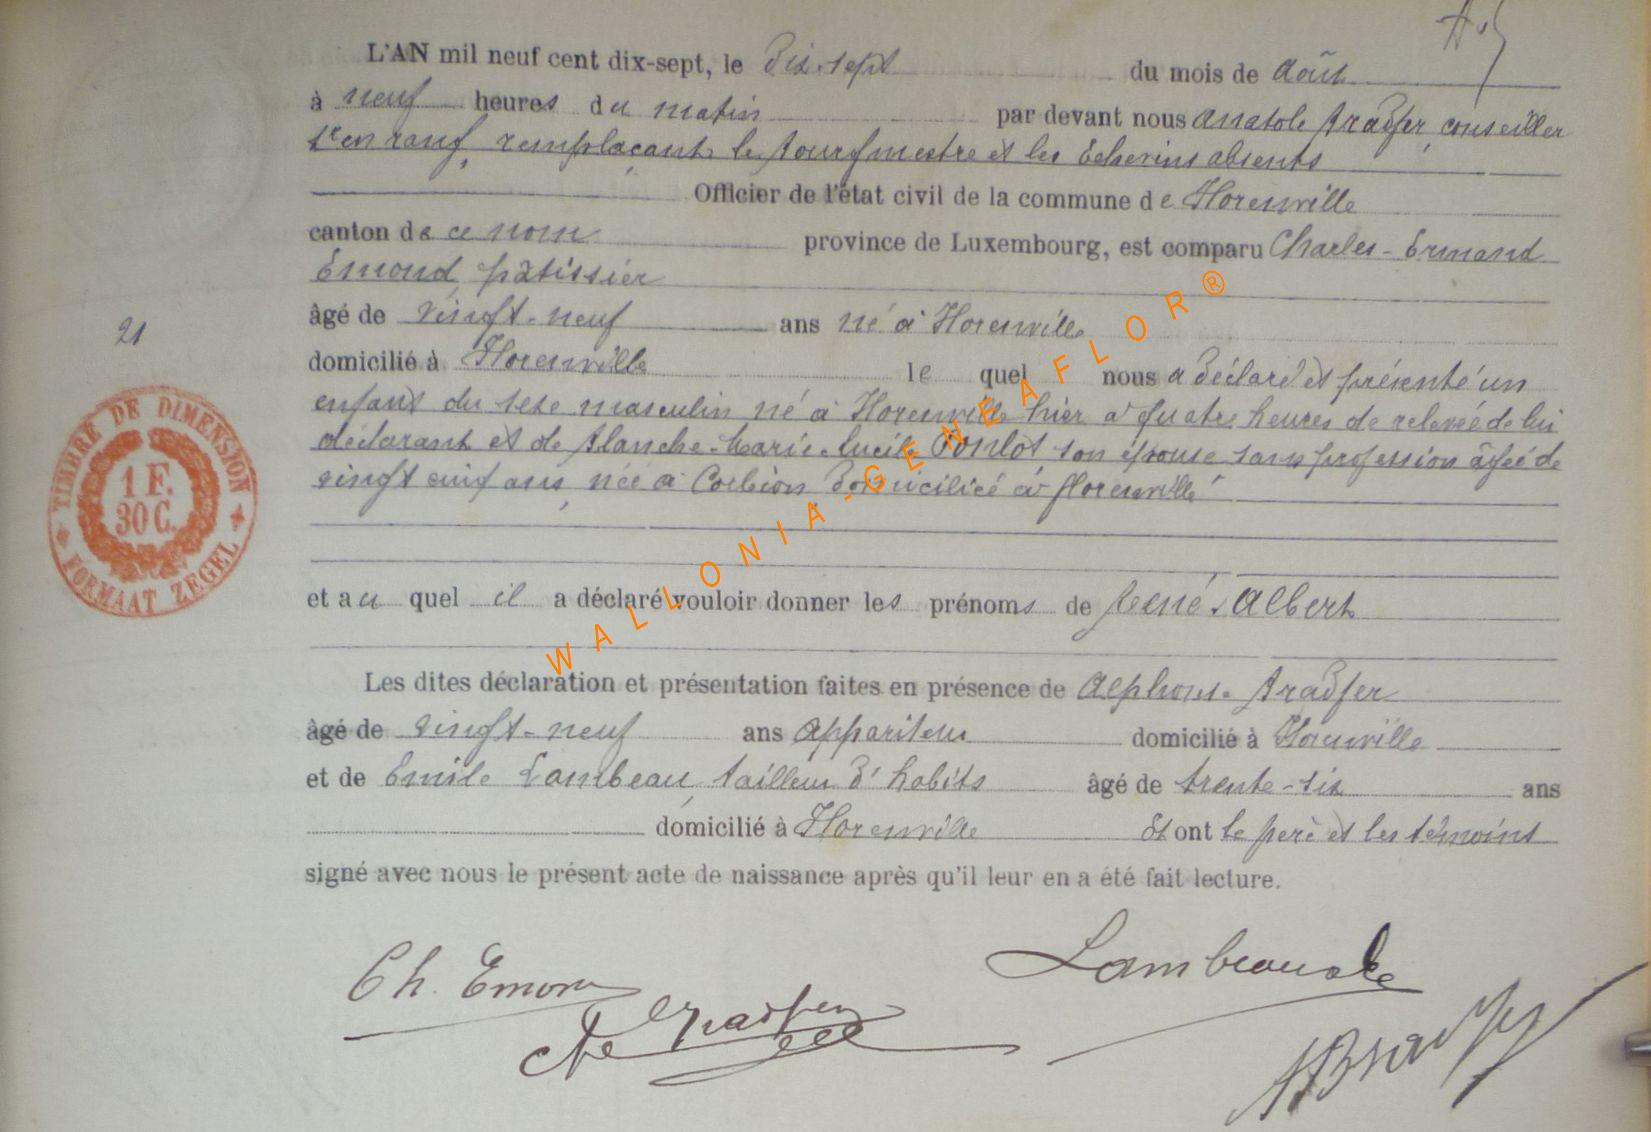 L'AN mil neuf cent dix-sept, le Dix-sept du mois de Août
à neuf heures du matin par devant nous Anatole Bradfer, conseiller
1er en rang, remplaçant le Bourgmestre et les Echevins absents
Officier de l'état civil de la commune de Florenville
canton de ce nom province de Luxembourg, est comparu Charles-Ermand
Emond, pâtissier
âgé de vingt-neuf ans né à Florenville
21
domicilié à Florenville le quel nous a déclaré et présenté un
enfant du sexe masculin né à Florenville hier à quatre heures de relevée de lui
déclarant et de Blanche-Marie-Lucile Poulot son épouse sans profession âgée de
vingt ans, née à Corbion Domiciliée à Florenville
et au quel il a déclaré vouloir donner les prénoms de René-Albert
Les dites déclaration et présentation faites en présence de Alphonse Bradfer
âgé de vingt-neuf ans appariteur domicilié à Florenville
et de Emile Lambeau, tailleur d'habits âgé de trente-six ans
domicilié à Florenville Et ont le père et les témoins
signé avec nous le présent acte de naissance après qu'il leur en a été fait lecture.
Ch. Emond
Lambeau
Bradfer
ABradfer
TIMBRE DE DIMENSION
1 F.
30 C.
FORMAAT ZEGEL
WALLONIA-GENEAFLOR®